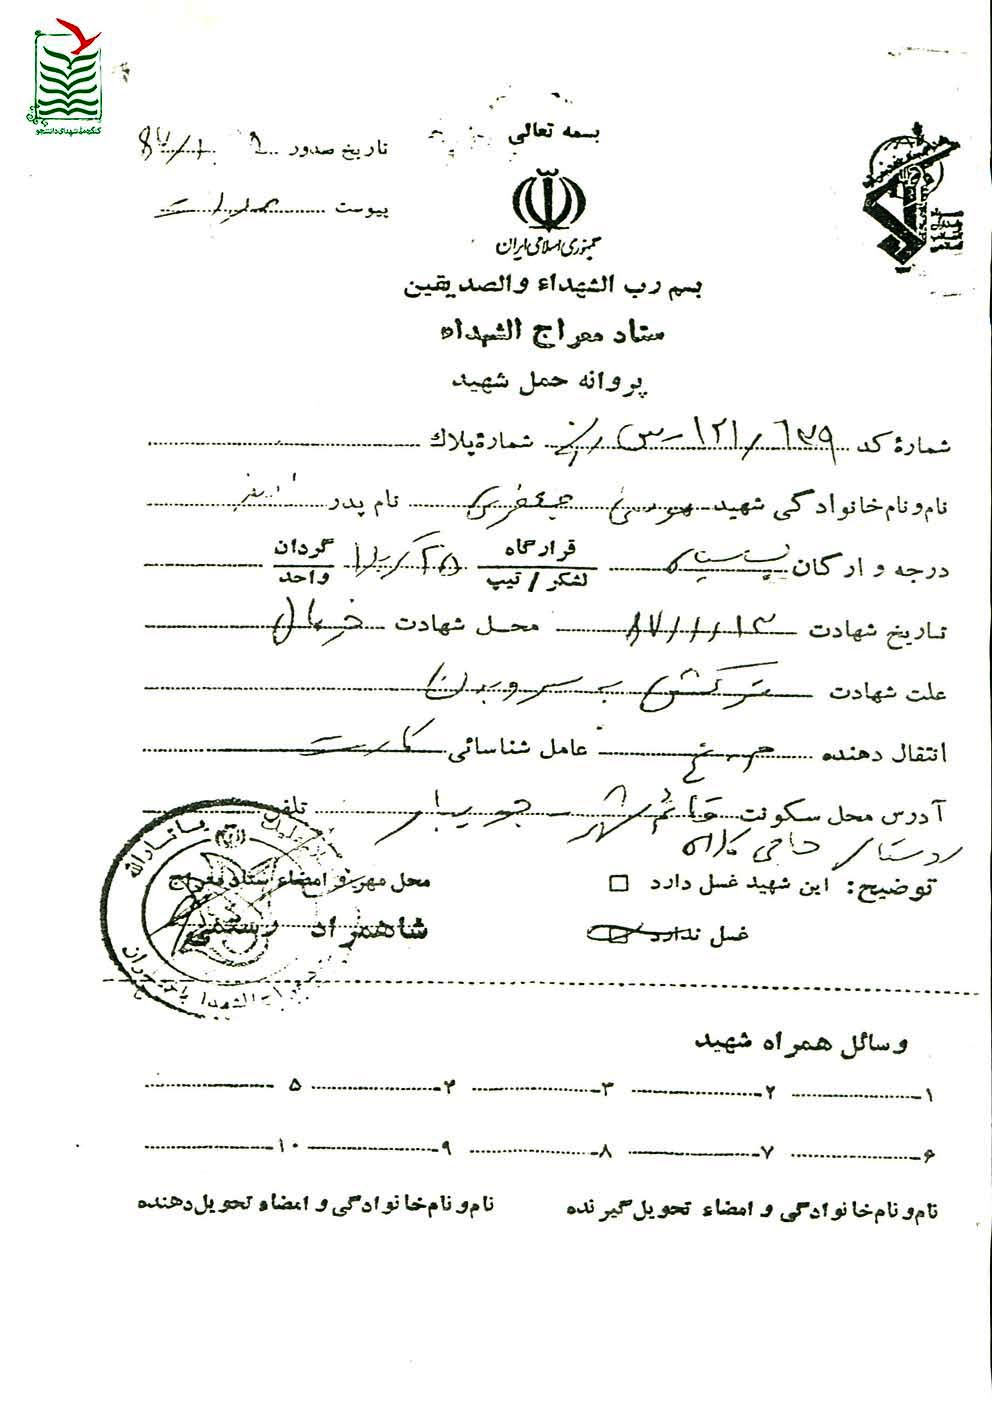 کنگره ملی شهدای دانشجو
بسمه تعالی
تاریخ صدور
پیوست
جمهوری اسلامی ایران
بسم رب الشهداء والصدیقین
ستاد معراج الشهداء
پروانه حمل شهید
شماره کد ۶۳۹/۱۲۱ شماره پلاک
نام و نام خانوادگی شهید موسی جعفری نام پدر
درجه و ارگان سپاه قرارگاه لشکر / تیپ ۲۵ کربلا گردان واحد
تاریخ شهادت ۶۷/۱/۱۳ محل شهادت خرمال
علت شهادت ترکش به سر و بدن
انتقال دهنده عامل شناسائی کارت
آدرس محل سکونت قائم شهر - جویبار تلفن
روستای حاجی کلاه
توضیح: این شهید غسل دارد □ محل مهر و امضاء ستاد معراج
غسل ندارد □ شاهمراد رستمی
یا ثارالله
وسائل همراه شهید
۱- ۲- ۳- ۴- ۵
۶- ۷- ۸- ۹- ۱۰
نام و نام خانوادگی و امضاء تحویل گیرنده نام و نام خانوادگی و امضاء تحویل دهنده